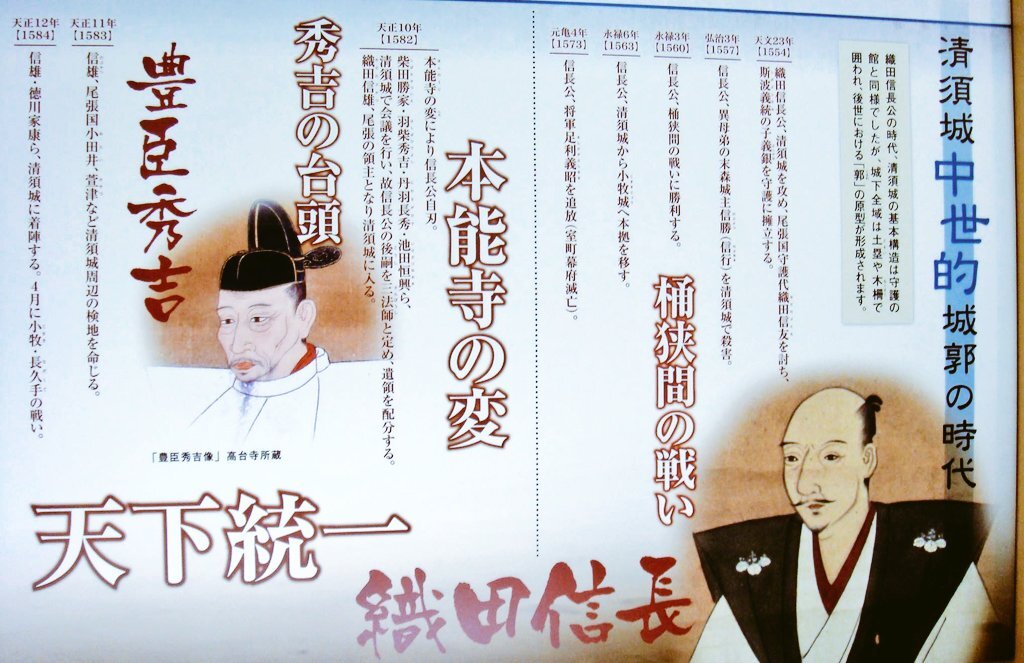 清須城中世的城郭の時代
織田信長公の時代、清須城の基本構造は守護の
館と同様でしたが、城下全域は土塁や木柵で
囲われ、後世における「郭」の原型が形成されます。
天文23年
【1554】
織田信長公、清須城を攻め、尾張国守護代織田信友を討ち、
斯波義統の子義銀を守護に擁立する。
弘治3年
【1557】
信長公、異母弟の末森城主信勝(信行)を清須城で殺害。
永禄3年
【1560】
信長公、桶狭間の戦いに勝利する。
桶狭間の戦い
永禄6年
【1563】
信長公、清須城から小牧城へ本拠を移す。
元亀4年
【1573】
信長公、将軍足利義昭を追放(室町幕府滅亡)。
織田信長
本能寺の変
天正10年
【1582】
本能寺の変により信長公自刃。
柴田勝家・羽柴秀吉・丹羽長秀・池田恒興ら、
清須城で会議を行い、故信長公の後嗣を三法師と定め、遺領を配分する。
織田信雄、尾張の領主となり清須城に入る。
秀吉の台頭
豊臣秀吉
「豊臣秀吉像」高台寺所蔵
天正11年
【1583】
信雄、尾張国小田井、萱津など清須城周辺の検地を命じる。
天正12年
【1584】
信雄・徳川家康ら、清須城に着陣する。4月に小牧・長久手の戦い。
天下統一